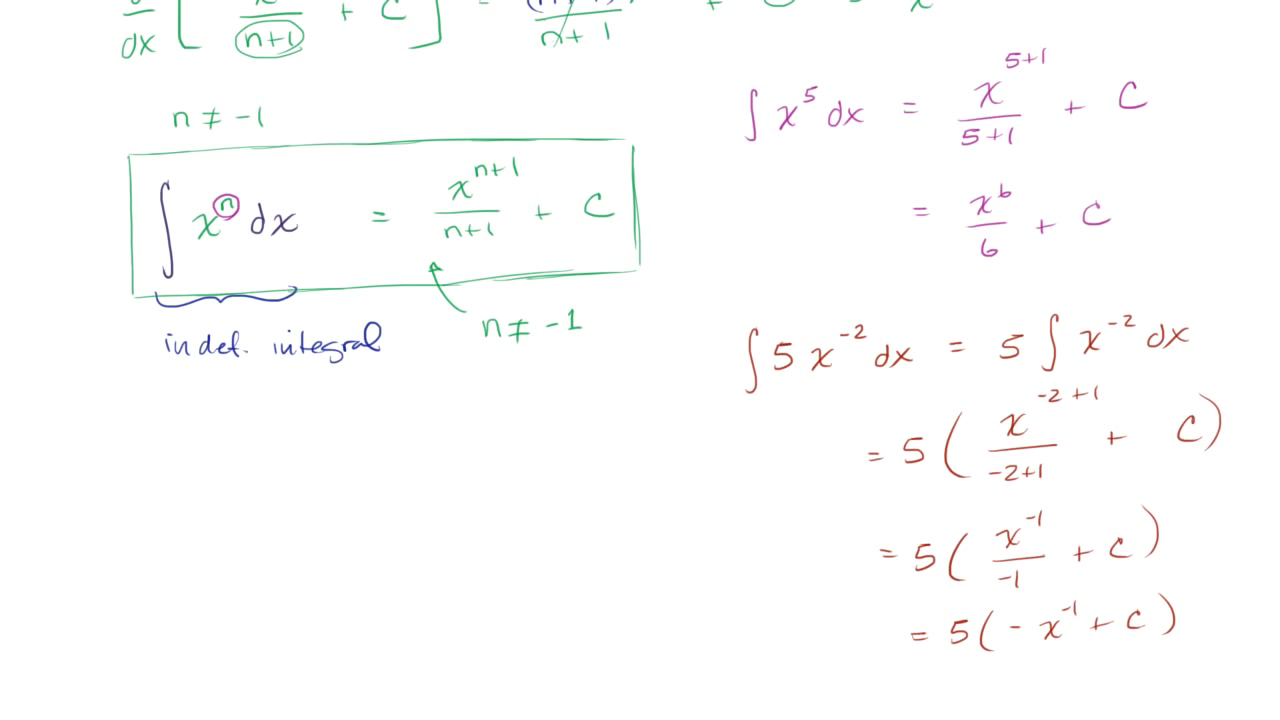 d/dx [ x/(n+1) + C ] = /(n+1) +
n ≠ -1
∫ xⁿ dx = xⁿ⁺¹/(n+1) + C
indef. integral
n ≠ -1
∫ x⁵ dx = x⁵⁺¹/(5+1) + C
= x⁶/6 + C
∫ 5 x⁻² dx = 5 ∫ x⁻² dx
= 5 ( x⁻²⁺¹/(-2+1) + C )
= 5 ( x⁻¹/-1 + C )
= 5 ( - x⁻¹ + C )